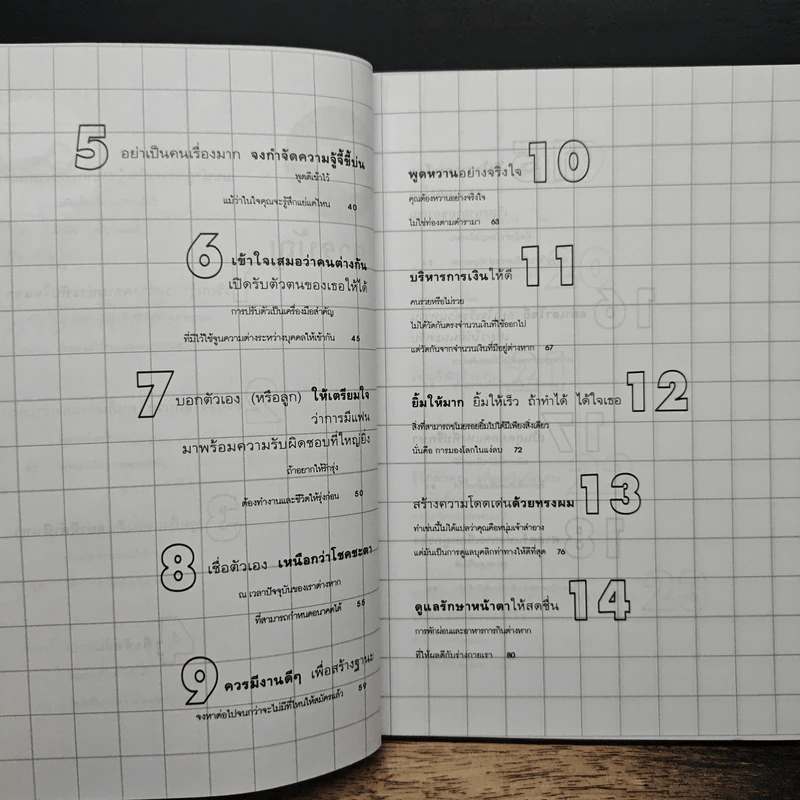 5 อย่าเป็นคนเรื่องมาก จงกำจัดความจู้จี้ขี้บ่น
พูดดีเข้าไว้
แม้ว่าในใจคุณจะรู้สึกแย่แค่ไหน 40
6 เข้าใจเสมอว่าคนต่างกัน
เปิดรับตัวตนของเธอให้ได้
การปรับตัวเป็นเครื่องมือสำคัญ
ที่มีไว้ใช้จูนความต่างระหว่างบุคคลให้เข้ากัน 45
7 บอกตัวเอง (หรือลูก) ให้เตรียมใจ
ว่าการมีแฟน
มาพร้อมความรับผิดชอบที่ใหญ่ยิ่ง
ถ้าอยากให้รักรุ่ง
ต้องทำงานและชีวิตให้รุ่งก่อน 50
8 เชื่อตัวเอง เหนือกว่าโชคชะตา
ณ เวลาปัจจุบันของเราต่างหาก
ที่สามารถกำหนดอนาคตได้ 55
9 ควรมีงานดีๆ เพื่อสร้างฐานะ
จงหาต่อไปจนกว่าจะไม่มีที่ไหนให้สมัครแล้ว 59
พูดหวานอย่างจริงใจ 10
คุณต้องหวานอย่างจริงใจ
ไม่ใช่ท่องตามตำรามา 63
บริหารการเงินให้ดี 11
คนรวยหรือไม่รวย
ไม่ได้วัดกันตรงจำนวนเงินที่ใช้ออกไป
แต่วัดกันจากจำนวนเงินที่มีอยู่ต่างหาก 67
ยิ้มให้มาก ยิ้มให้เร็ว ถ้าทำได้ ได้ใจเธอ 12
สิ่งที่สามารถขโมยรอยยิ้มไปได้มีเพียงสิ่งเดียว
นั่นคือ การมองโลกในแง่ลบ 72
สร้างความโดดเด่นด้วยทรงผม 13
ทำเช่นนี้ไม่ได้แปลว่าคุณคือหนุ่มเจ้าสำอาง
แต่มันเป็นการดูแลบุคลิกท่าทางให้ดีที่สุด 76
ดูแลรักษาหน้าตาให้สดชื่น 14
การพักผ่อนและอาหารการกินต่างหาก
ที่ให้ผลดีกับร่างกายเรา 80